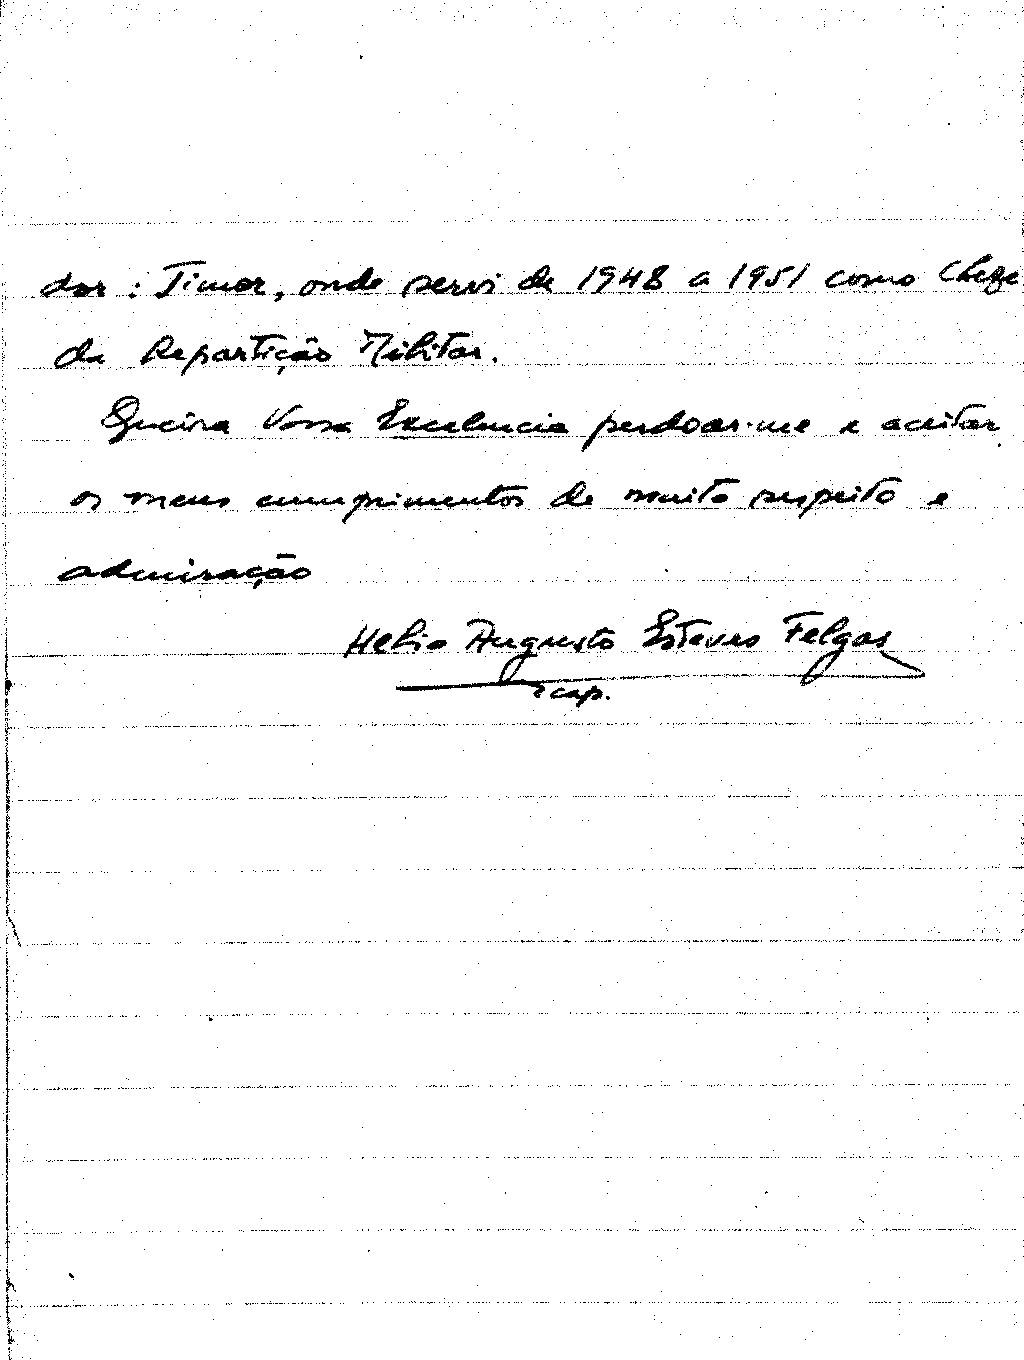 dor: Timor, onde servi de 1948 a 1951 como Chefe
da Repartição Militar.
Queira Vossa Excelencia perdoar-me e aceitar
os meus cumprimentos de muito respeito e
admiração
Helio Augusto Esteves Felgas
cap.